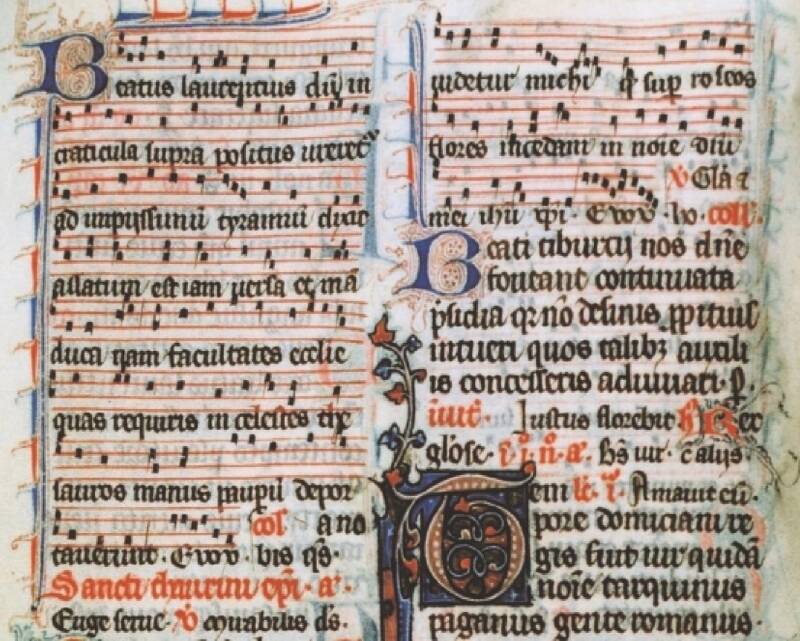 Beatus laurentius dum in
craticula supra positus ureret
ad impiissimū tyrannū dixit
assatum est iam versa et mā
duca nam facultates ecclie
quas requiris in celestes the
sauros manus paupū depor
col a no
taverunt. Evov bis qs.
Sancti
Euge serve. v̄ ds.
videtur michi sup roseos
flores incedam in noīe dni
v̄ Glā
mei ihū xpi. Evov. coll.
Beati tiburcij nos dñe
foveant continuata
psidia qr nō desinis ppitius
intueri quos talibz auxili
is concesseris adiuvari. p̄.
Iustus florebit
glose.
Tem Amavit eū.
pore domiciani re
gis fuit vir quidā
noīe tarquinus
paganus gente romanus.